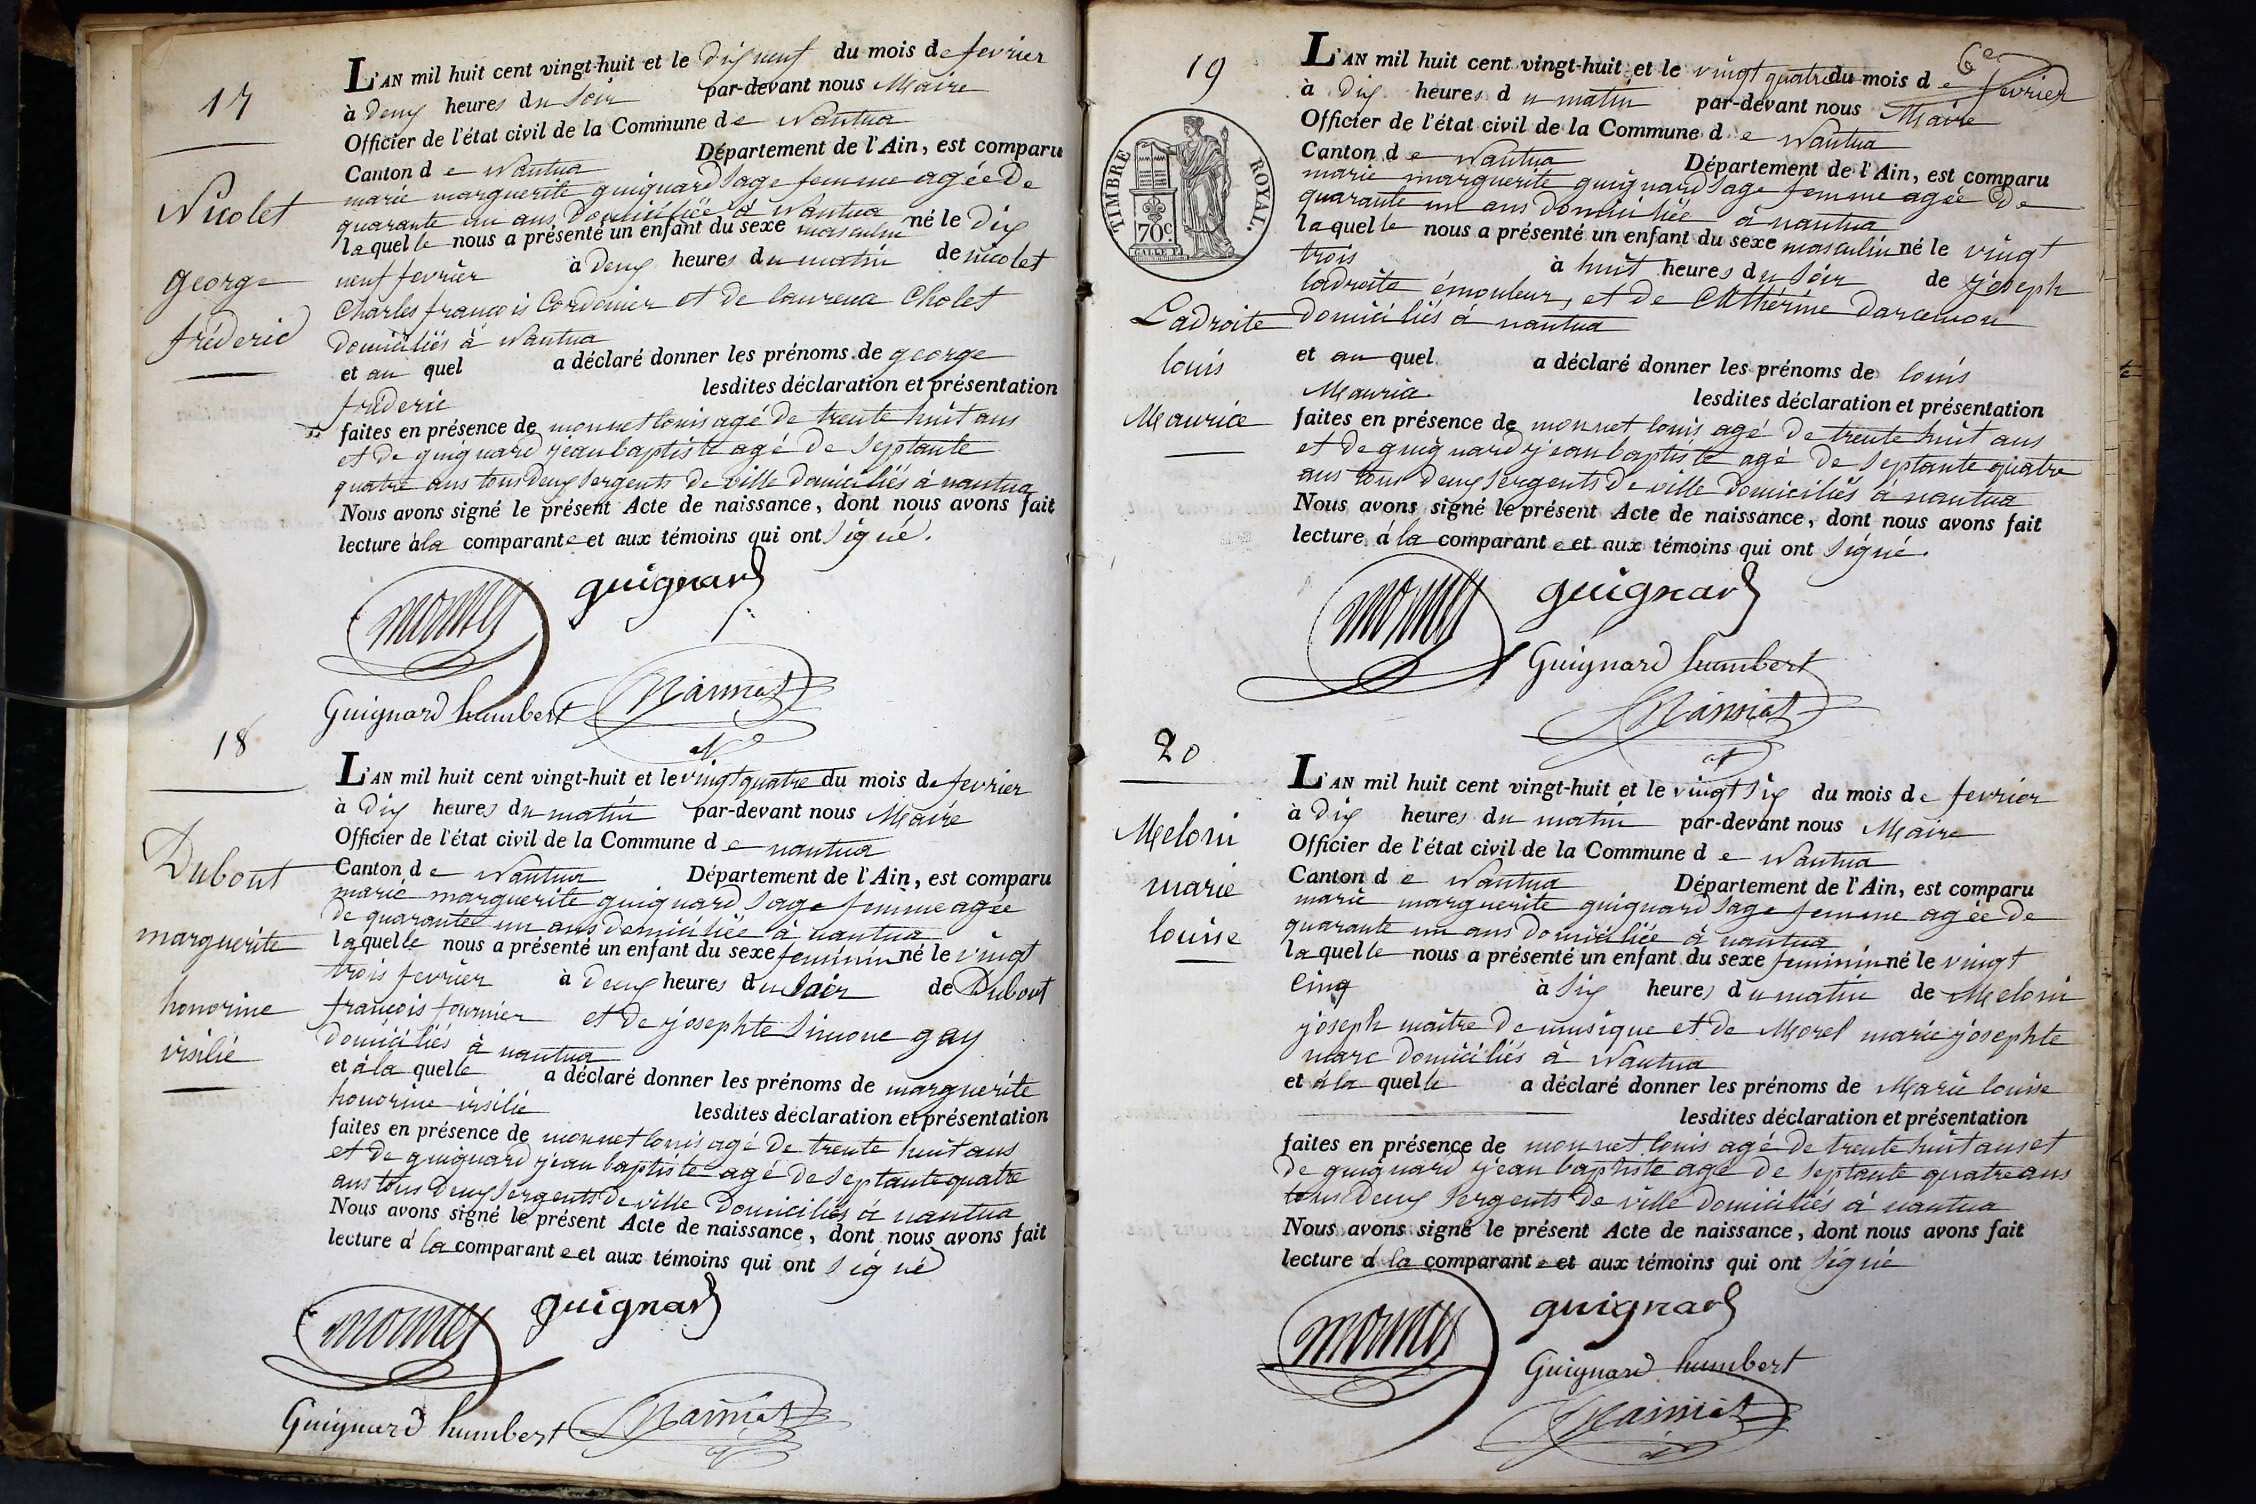 17
Nicolet
george
fréderic
L'AN mil huit cent vingt-huit et le dix neuf du mois de fevrier
à deux heures du Soir par-devant nous Maire
Officier de l'état civil de la Commune de Nantua
Canton de Nantua Département de l'Ain, est comparu
marie marguerite guignard Sage femme agée De
quarante un ans Domiciliée à Nantua
laquelle nous a présenté un enfant du sexe masculin né le Dix
neuf fevrier à Deux heures du matin de nicolet
Charles francois Cordonier et de laurena Cholet
Domiciliés à Nantua
et au quel a déclaré donner les prénoms de george
fréderic lesdites déclaration et présentation
faites en présence de monnet louis agé De trente huit ans
et De guignard jean baptiste agé De Septante
quatre ans tous Deux Sergents De ville Domiciliés à nantua
Nous avons signé le présent Acte de naissance, dont nous avons fait
lecture à la comparante et aux témoins qui ont Signé.
monnet guignard
Guignard humbert
18
Dubout
marguerite
honorine
visilie
L'AN mil huit cent vingt-huit et le vingt quatre du mois de fevrier
à Dix heures du matin par-devant nous Maire
Officier de l'état civil de la Commune de nantua
Canton de Nantua Département de l'Ain, est comparu
marie marguerite guignard Sage femme agée
de quarante un ans domiciliée à nantua
laquelle nous a présenté un enfant du sexe feminin né le vingt
trois fevrier à Deux heures du Soir de Dubout
françois fournier et de josephte Simone gay
Domiciliés à nantua
et à la quelle a déclaré donner les prénoms de marguerite
honorine visilie lesdites déclaration et présentation
faites en présence de monnet louis agé De trente huit ans
et De guignard jean baptiste agé De Septante quatre
ans tous Deux Sergents De ville Domiciliés à nantua
Nous avons signé le présent Acte de naissance, dont nous avons fait
lecture à la comparante et aux témoins qui ont Signé
monnet guignard
Guignard humbert
6e
19
TIMBRE ROYAL.
70c.
Ladroite
louis
Maurice
L'AN mil huit cent vingt-huit et le vingt quatre du mois de fevrier
à Dix heures du matin par-devant nous Maire
Officier de l'état civil de la Commune de Nantua
Canton de Nantua Département de l'Ain, est comparu
marie marguerite guignard Sage femme agée De
quarante un ans Domiciliée à nantua
laquelle nous a présenté un enfant du sexe masculin né le vingt
trois à huit heures du Soir de joseph
ladroite émouleur, et De Cathérine Darcemon
Domiciliés à nantua
et au quel a déclaré donner les prénoms de louis
Maurice lesdites déclaration et présentation
faites en présence de monnet louis agé De trente huit ans
et De guignard jean baptiste agé De Septante quatre
ans tous Deux Sergents De ville Domiciliés à nantua
Nous avons signé le présent Acte de naissance, dont nous avons fait
lecture à la comparante et aux témoins qui ont Signé.
monnet guignard
Guignard humbert
20
Meloni
marie
louise
L'AN mil huit cent vingt-huit et le vingt Six du mois de fevrier
à Dix heures du matin par-devant nous Maire
Officier de l'état civil de la Commune de Nantua
Canton de Nantua Département de l'Ain, est comparu
marie marguerite guignard Sage femme agée De
quarante un ans Domiciliée à nantua
laquelle nous a présenté un enfant du sexe feminin né le vingt
Cinq à Six heures du matin de Meloni
joseph maître De musique et de Morel marie josephte
marc Domiciliés à Nantua
et à la quelle a déclaré donner les prénoms de Marie louise
lesdites déclaration et présentation
faites en présence de monnet louis agé De trente huit ans et
De guignard jean baptiste agé De Septante quatre ans
tous Deux Sergents De ville Domiciliés à nantua
Nous avons signé le présent Acte de naissance, dont nous avons fait
lecture à la comparante et aux témoins qui ont Signé
monnet guignard
Guignard humbert